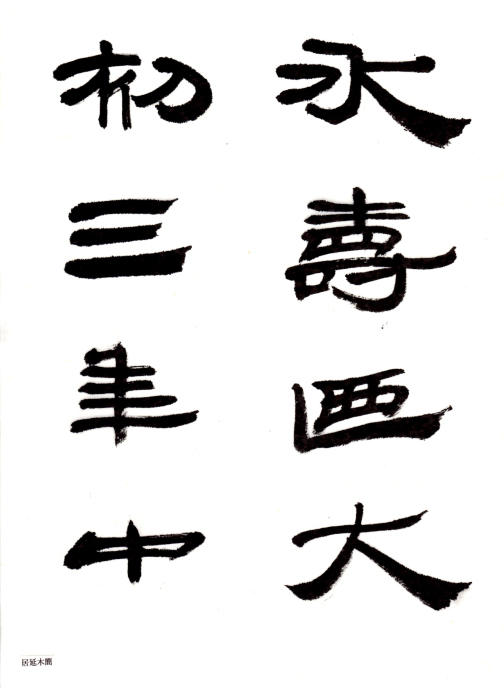 永壽迺大
初三年中
居延木簡